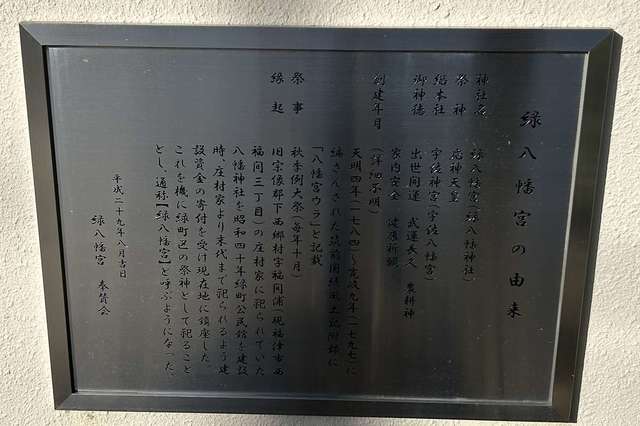 緑八幡宮の由来
神社名 緑八幡宮(緑八幡神社)
祭神 応神天皇
総本社 宇佐神宮(宇佐八幡宮)
御神徳 出世開運 武運長久 農耕神
家内安全 健康祈願
創建年月 (詳細不明)
天明四年(一七八四)~寛政九年(一七九七)に
編さんされた筑前国続風土記附録に
「八幡宮ウラ」と記載
祭事 秋季例大祭(毎年十月)
縁起 旧宗像郡下西郷村字福間浦(現福津市西
福間三丁目)の庄村家に祀られていた
八幡神社を昭和四十年緑町公民館を建設
時、庄村家より末代まで祀られるよう建
設資金の寄付を受け現在地に鎮座した。
これを機に緑町区の祭神として祀ること
とし、通称【緑八幡宮】と呼ぶようになった。
平成二十九年八月吉日
緑八幡宮 奉賛会